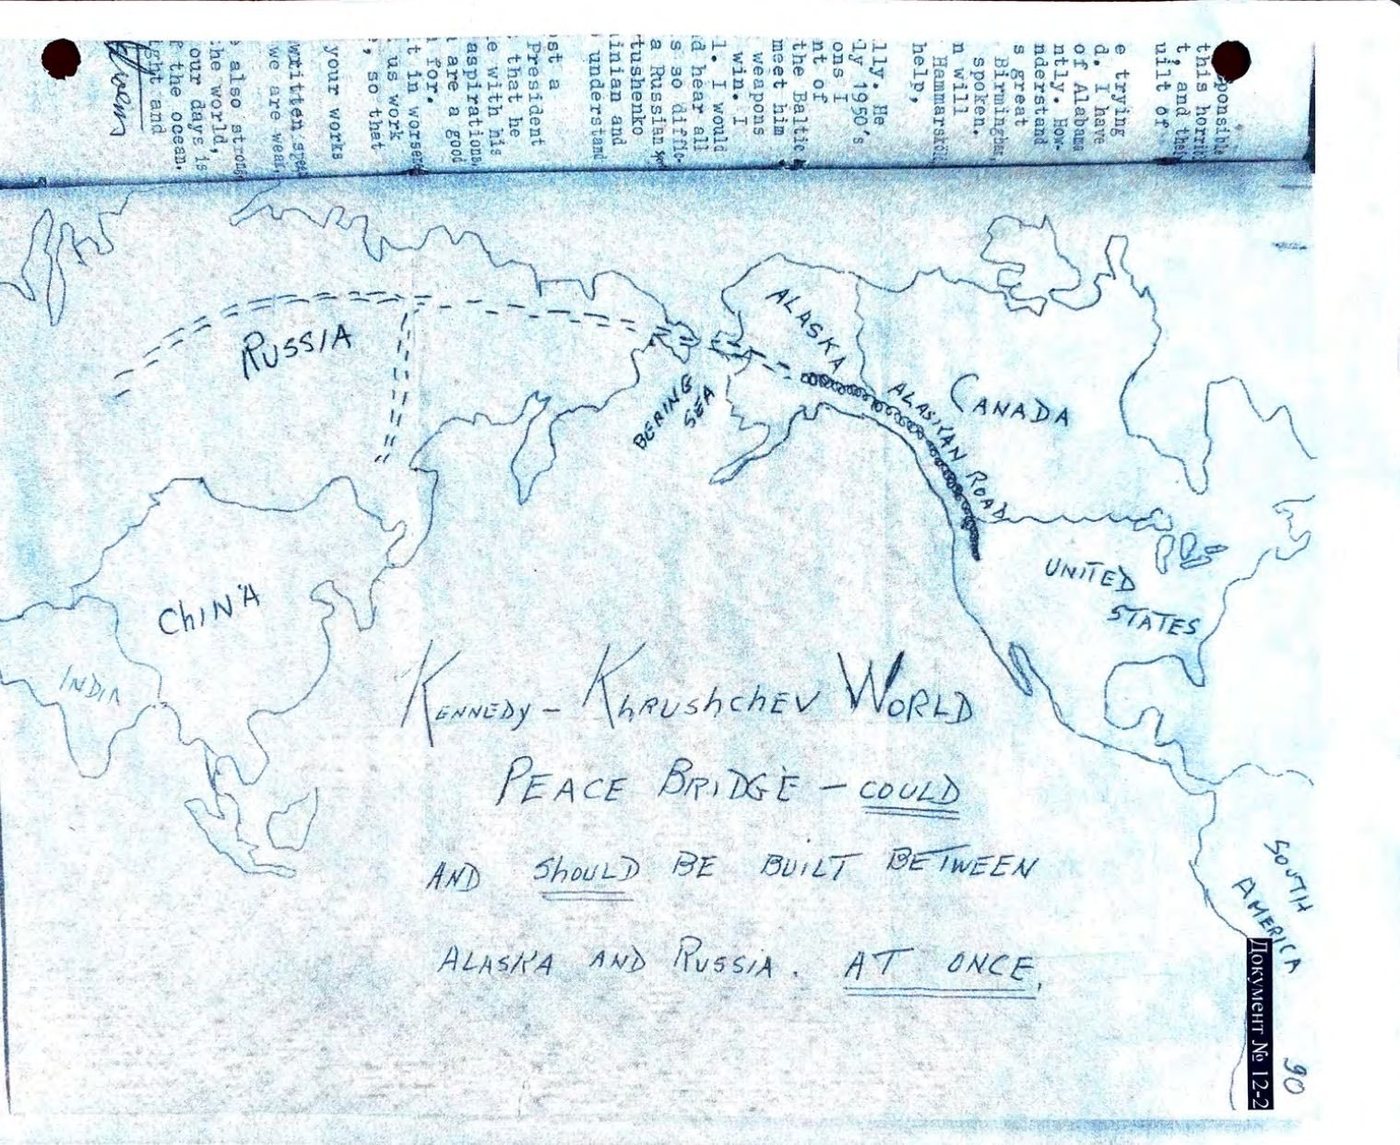 ponsible
this horrib
t, and the
uilt of
e trying
d. I have
of Alabama
ntly. How-
nderstand
s great
Birmingham,
spoken.
n will
Hammarskjo
help,
lly. He
ly 1950's
ons I
nt of
the Baltic
meet him
weapons
win. I
l. I would
d hear all
s so diffic-
a Russian
tushenko
inian and
understand
st a
President
that he
e with his
aspirations,
are a good
for.
t in worse
us work
, so that
your works
written
we are weak
also strong
he world,
our days is
f the ocean.
ght and
RUSSIA
ALASKA
BERING
SEA
ALASKAN ROAD
CANADA
UNITED
STATES
CHINA
INDIA
KENNEDY – KHRUSHCHEV WORLD
PEACE BRIDGE – COULD
AND SHOULD BE BUILT BETWEEN
ALASKA AND RUSSIA. AT ONCE.
SOUTH
AMERICA
Документ № 12-2
90